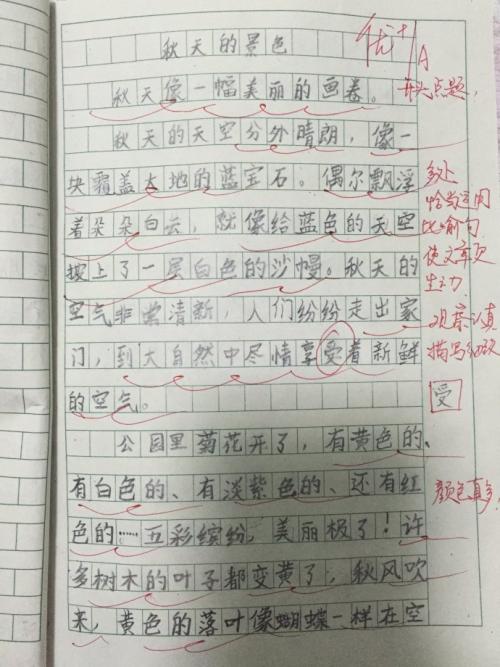 秋天的景色
优+
A
秋天像一幅美丽的画卷。
开头点题,
秋天的天空分外晴朗，像一
块霸盖大地的蓝宝石。偶尔飘浮
多处
恰当运用
着朵朵白云，就像给蓝色的天空
比喻句
使文章更
披上了一层白色的沙幔。秋天的
生动
空气非常清新，人们纷纷走出家
观察认真
门，到大自然中尽情享受着新鲜
描写细致
的空气。
受
公园里菊花开了，有黄色的、
有白色的、有淡紫色的、还有红
颜色真多
色的……五彩缤纷，美丽极了！许
多树木的叶子都变黄了，秋风吹
来，黄色的落叶像蝴蝶一样在空